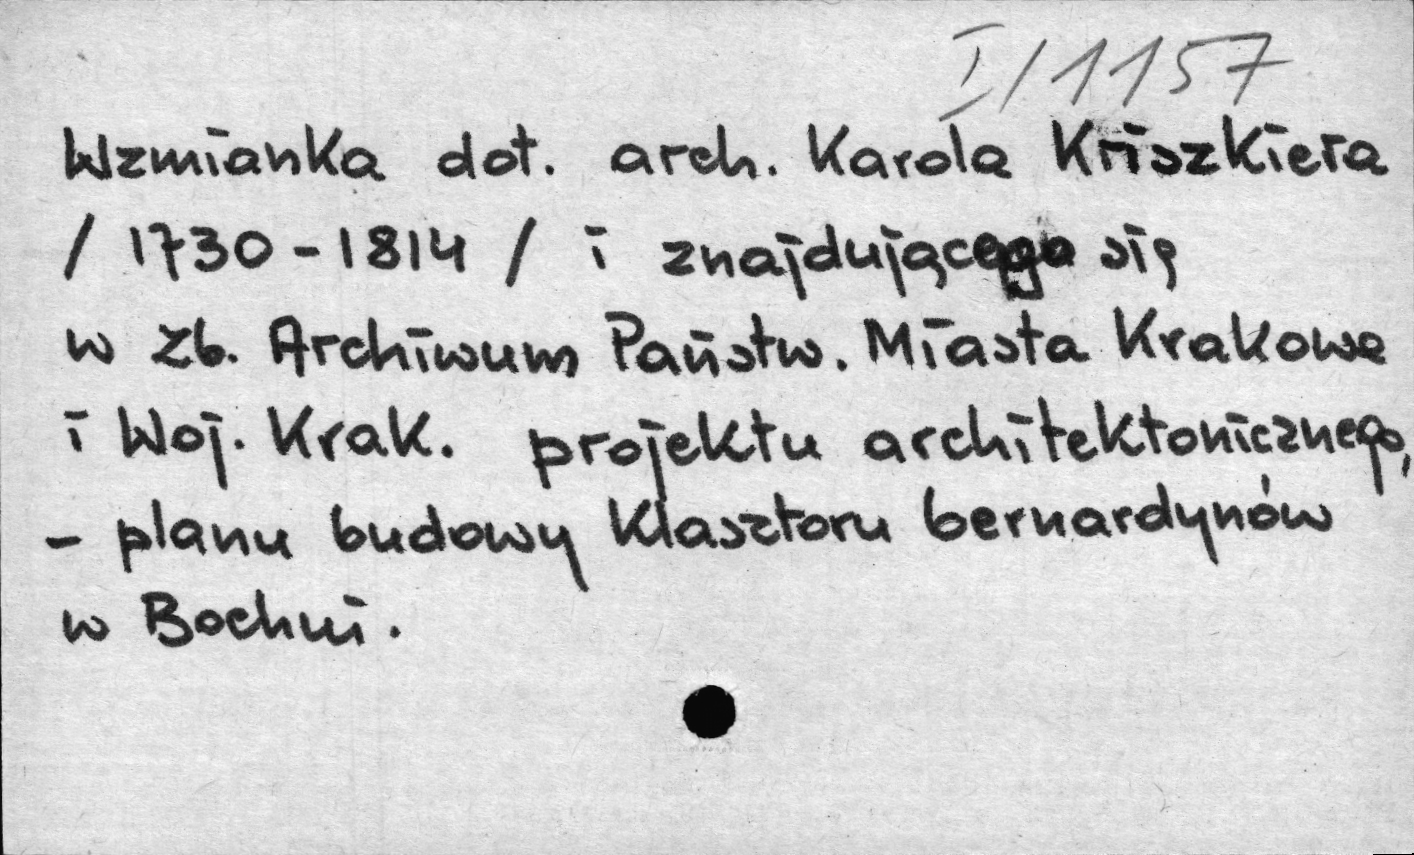 I/1157
Wzmianka dot. arch. Karola Kriszkiera
/ 1730 - 1814 / i znajdującego się
w zb. Archiwum Państw. Miasta Krakowa
i Woj. Krak. projektu architektonicznego,
- planu budowy Klasztoru bernardynów
w Bochni.